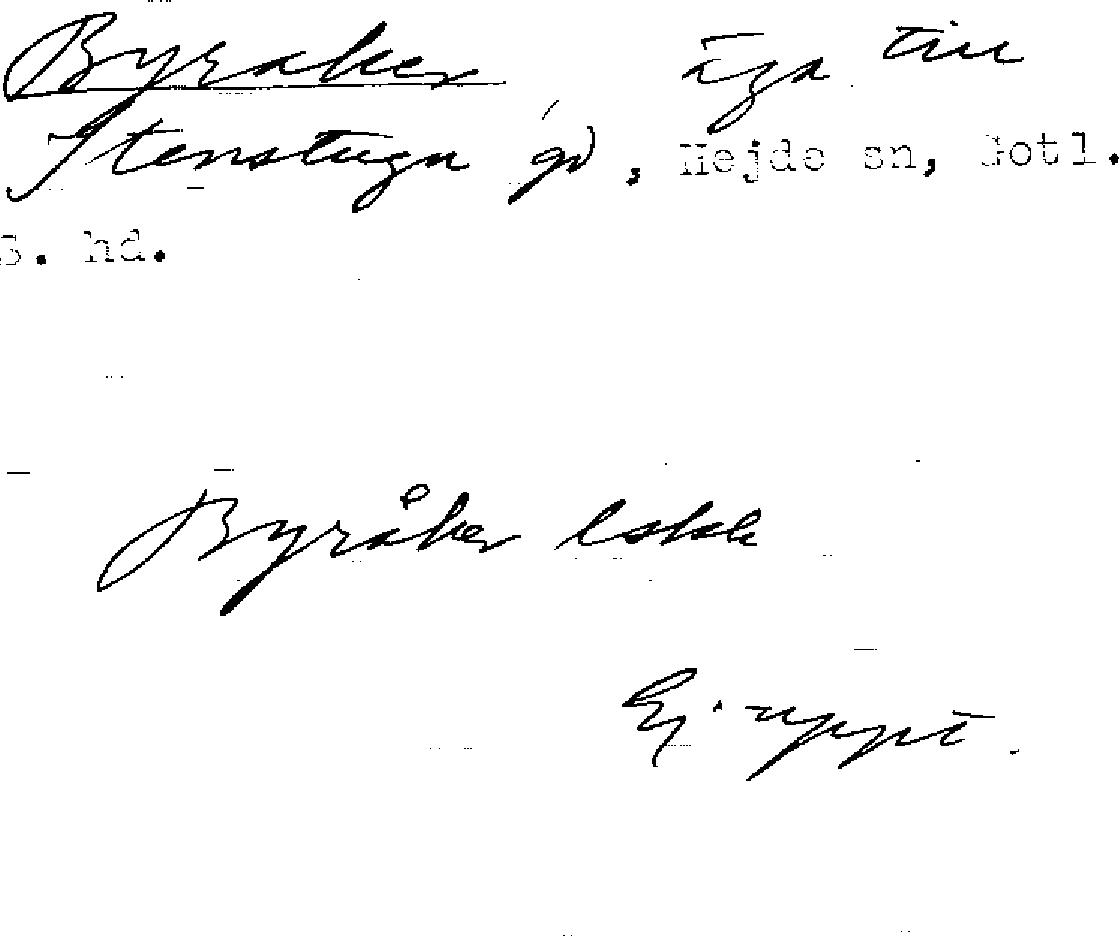 Byraker, äga till
Stenstugu gd, Hejde sn, Gotl.
S. hd.
Byråker Lskk
Ej uppt.